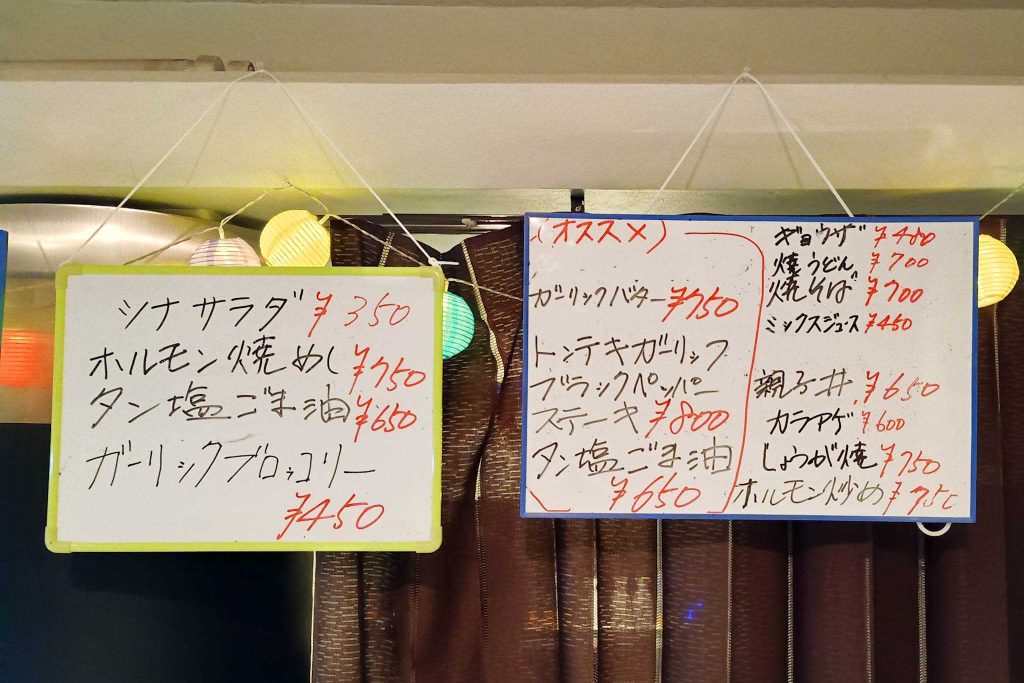 シナサラダ ¥350
ホルモン焼めし ¥750
タン塩ごま油 ¥650
ガーリックブロッコリー
¥450
(オススメ)
ガーリックバター ¥750
トンテキガーリック
ブラックペンパー
ステーキ ¥800
タン塩ごま油
¥650
ギョウザ ¥480
焼うどん ¥700
焼そば ¥700
ミックスジュース ¥450
親子丼 ¥650
カラアゲ ¥600
しょうが焼 ¥750
ホルモン炒め ¥750